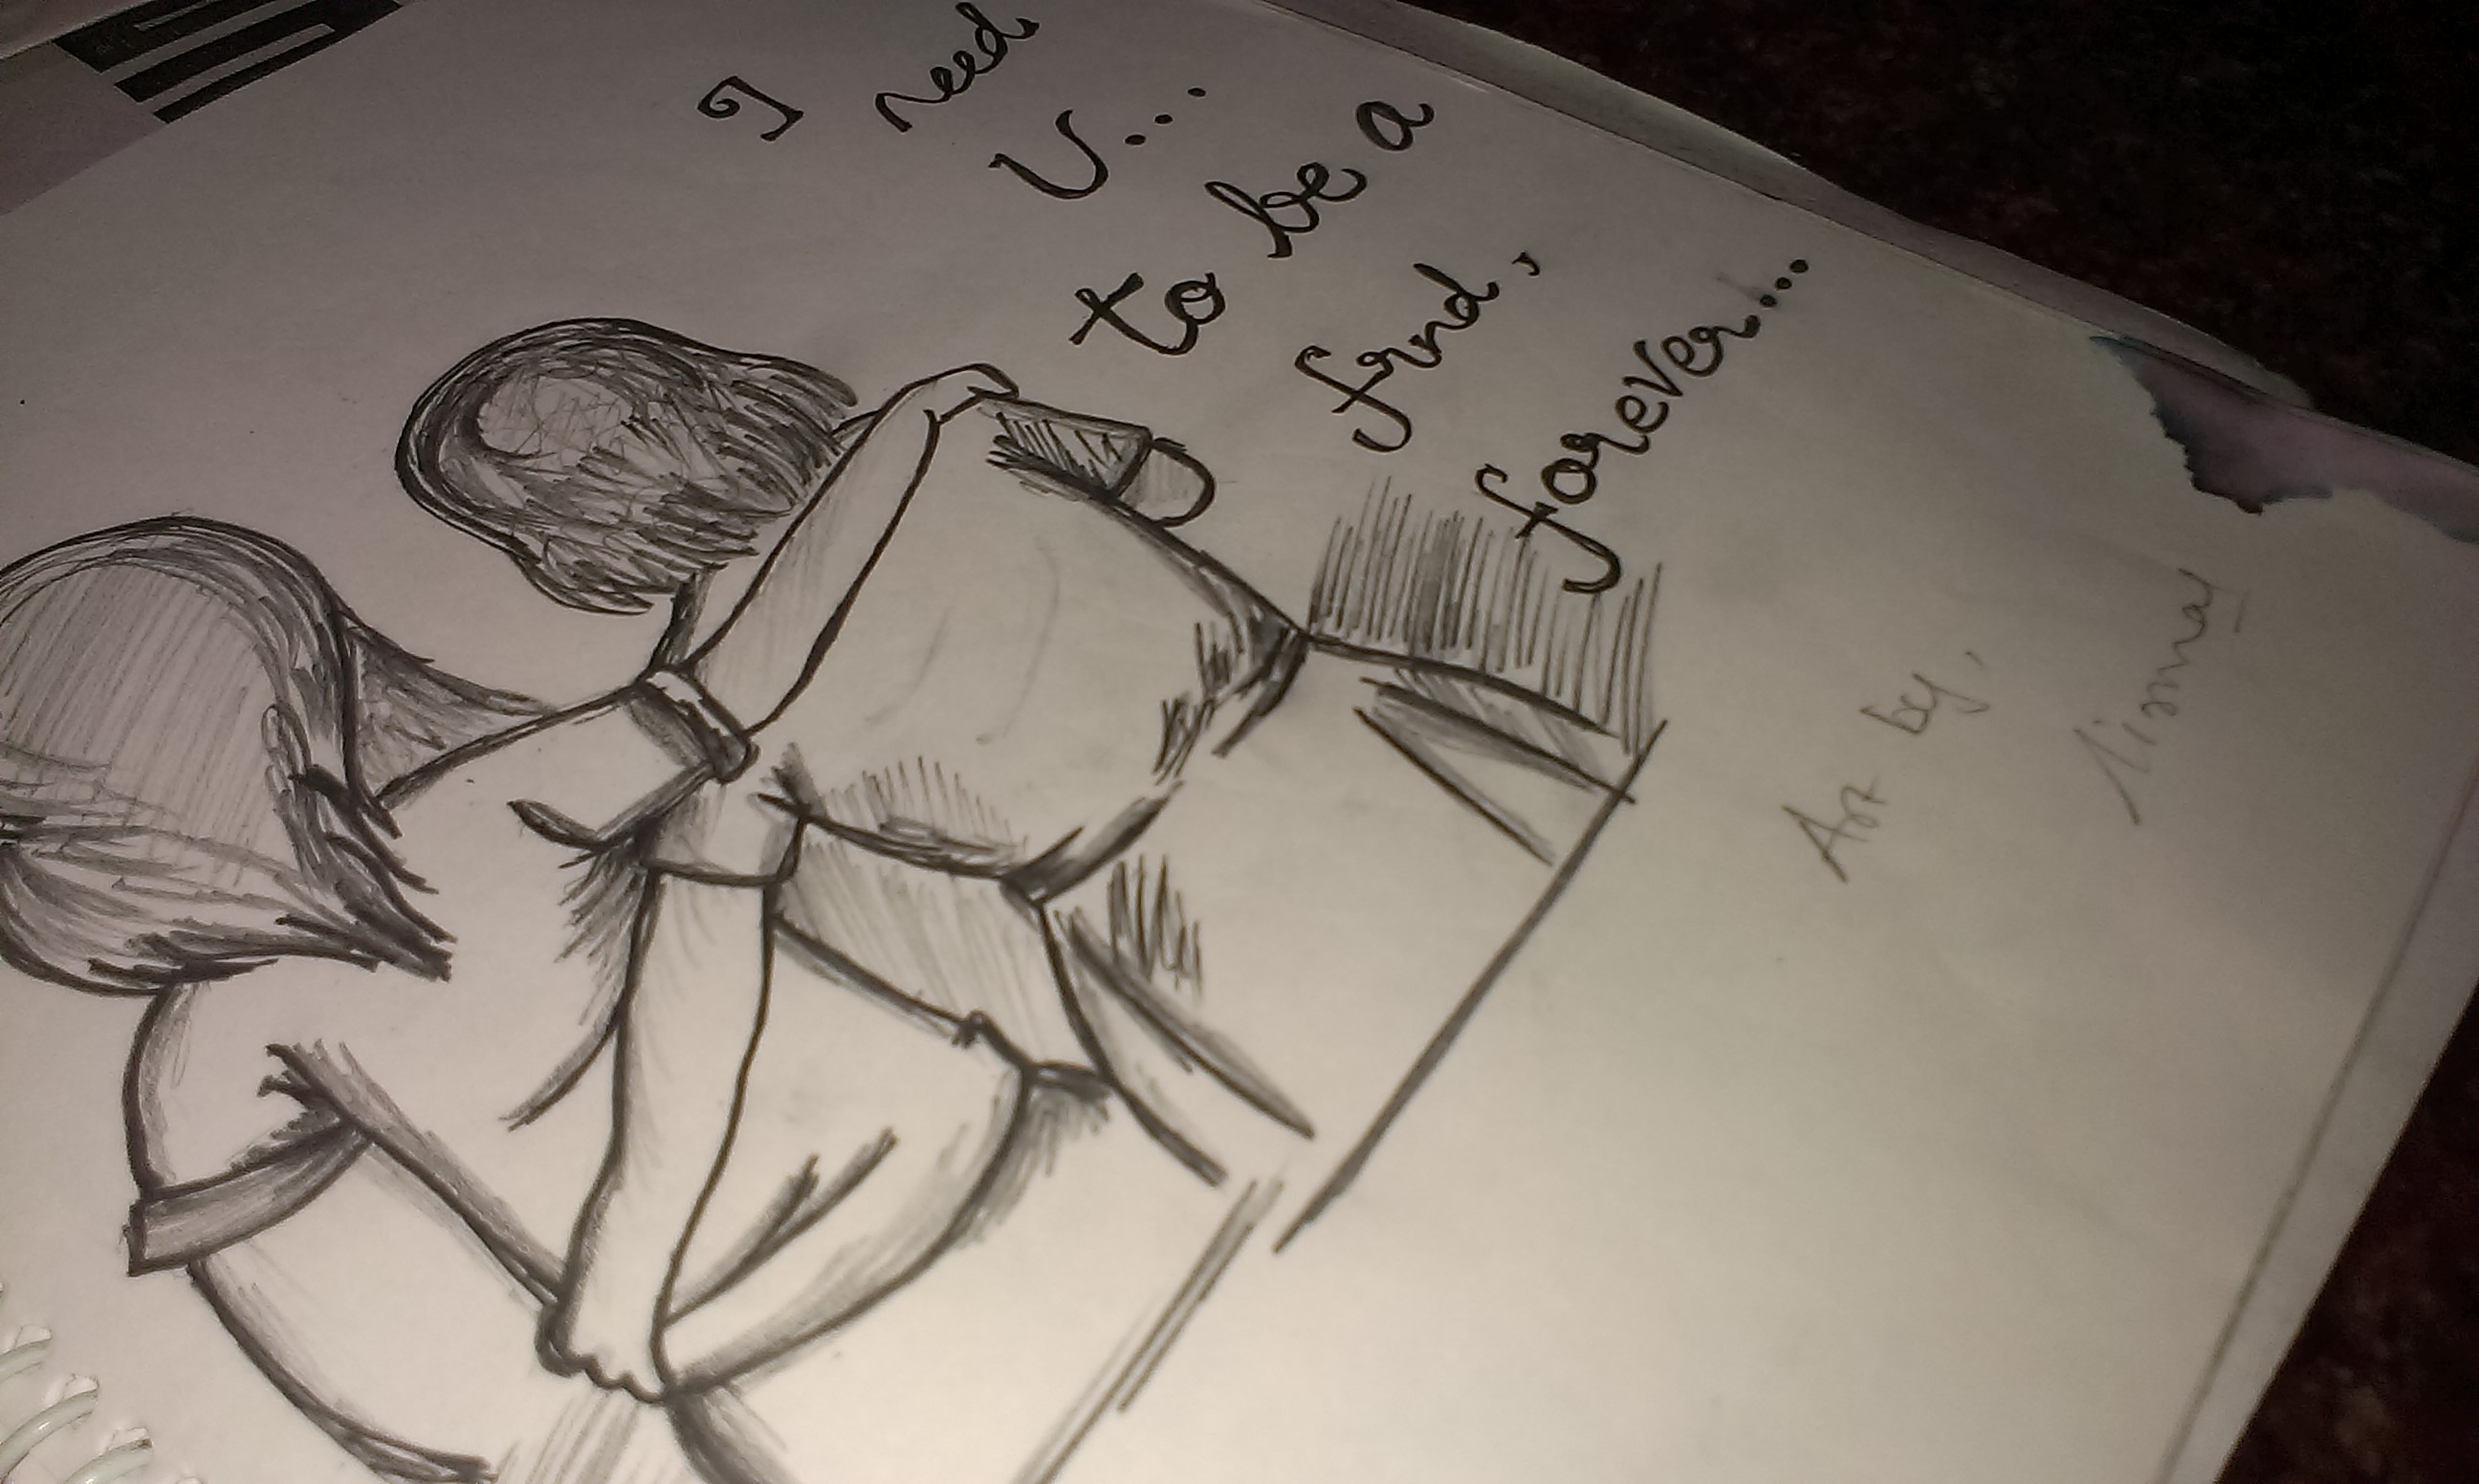 I need
U...
to be a
frnd,
forever...
Art by,